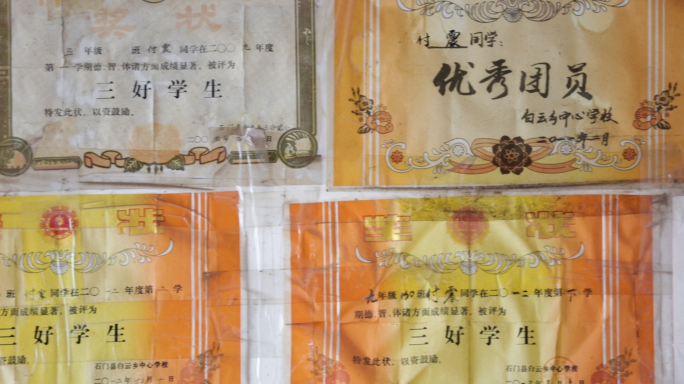 奖状
三年级 班付震同学在二〇〇九年度
第一学期德、智、体诸方面成绩显著,被评为
三好学生
特发此状,以资鼓励。
付震同学:
优秀团员
白云乡中心学校
二〇一 年 月
奖状
班付震同学在二〇一二年度第二学
方面成绩显著,被评为
好学生
,以资鼓励。
石门县白云乡中心学校
二〇一二年 月 日
奖状
九年级 班付震同学在二〇一二年度第下学
期德、智、体诸方面成绩显著,被评为
三好学生
特发此状,以资鼓励。
石门县白云乡中心学校
二〇一 年 月 日